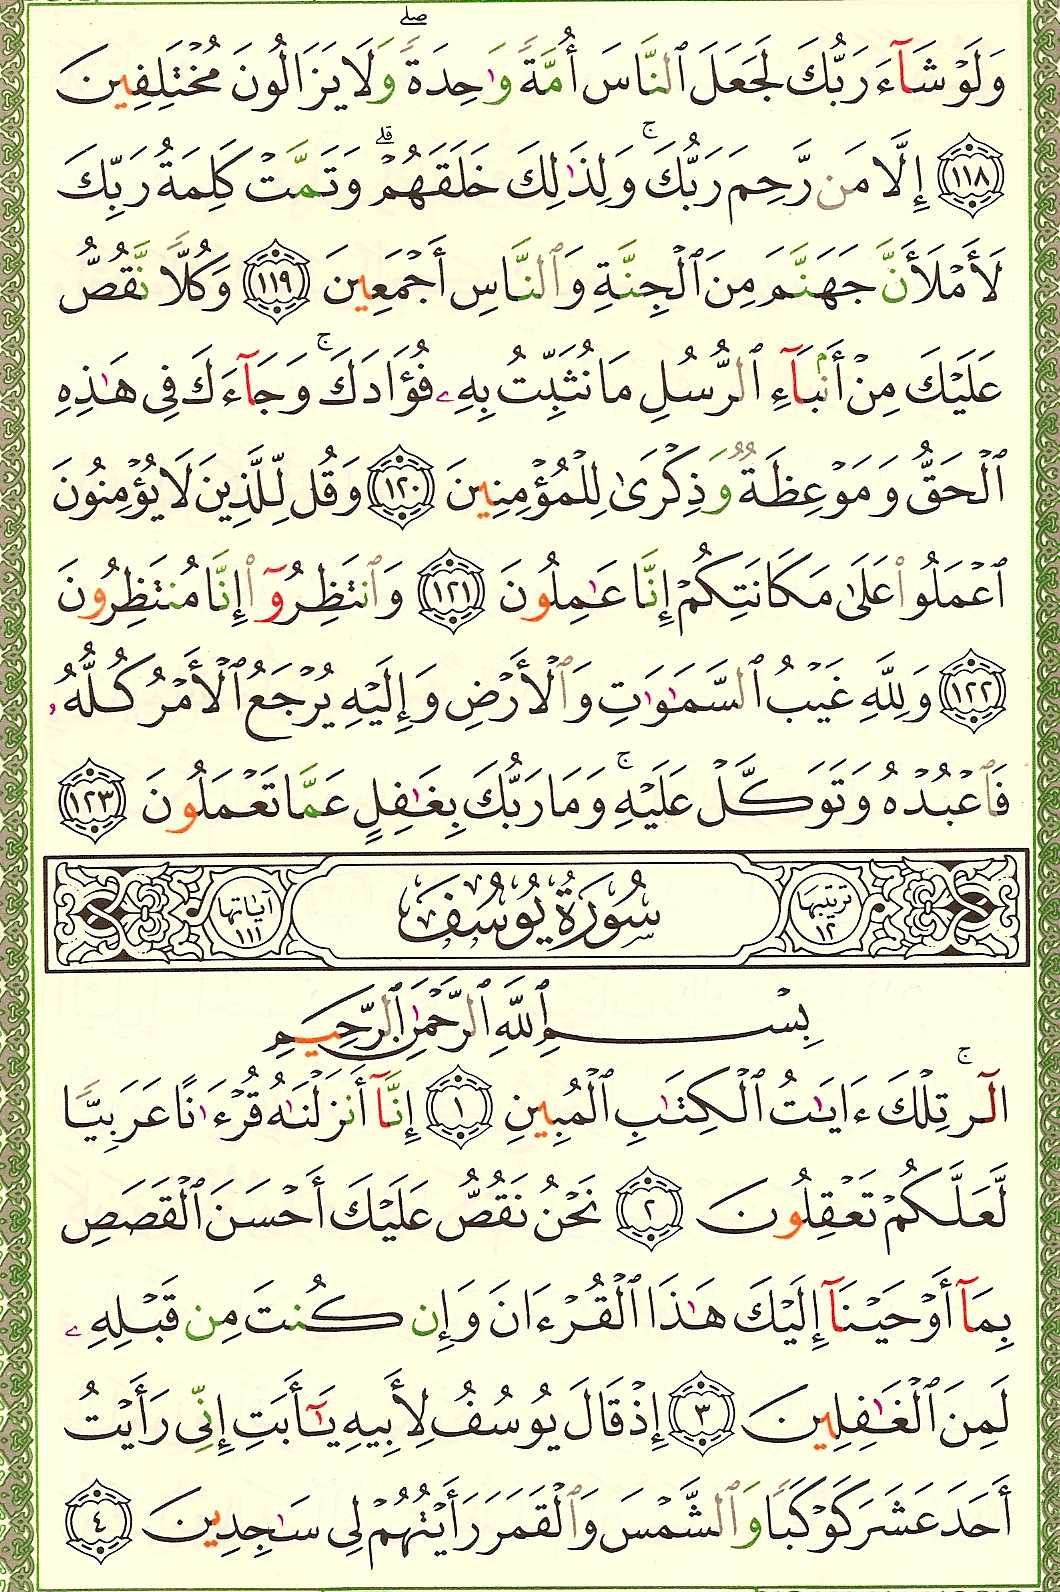 وَلَوْ شَآءَ رَبُّكَ لَجَعَلَ ٱلنَّاسَ أُمَّةً وَٰحِدَةً ۖ وَلَا يَزَالُونَ مُخْتَلِفِينَ
١١٨ إِلَّا مَن رَّحِمَ رَبُّكَ ۚ وَلِذَٰلِكَ خَلَقَهُمْ ۗ وَتَمَّتْ كَلِمَةُ رَبِّكَ
لَأَمْلَأَنَّ جَهَنَّمَ مِنَ ٱلْجِنَّةِ وَٱلنَّاسِ أَجْمَعِينَ ١١٩ وَكُلًّا نَّقُصُّ
عَلَيْكَ مِنْ أَنۢبَآءِ ٱلرُّسُلِ مَا نُثَبِّتُ بِهِۦ فُؤَادَكَ ۚ وَجَآءَكَ فِى هَـٰذِهِ
ٱلْحَقُّ وَمَوْعِظَةٌ وَذِكْرَىٰ لِلْمُؤْمِنِينَ ١٢٠ وَقُل لِّلَّذِينَ لَا يُؤْمِنُونَ
ٱعْمَلُوا۟ عَلَىٰ مَكَانَتِكُمْ إِنَّا عَـٰمِلُونَ ١٢١ وَٱنتَظِرُوٓا۟ إِنَّا مُنتَظِرُونَ
١٢٢ وَلِلَّهِ غَيْبُ ٱلسَّمَـٰوَٰتِ وَٱلْأَرْضِ وَإِلَيْهِ يُرْجَعُ ٱلْأَمْرُ كُلُّهُۥ
فَٱعْبُدْهُ وَتَوَكَّلْ عَلَيْهِ ۚ وَمَا رَبُّكَ بِغَـٰفِلٍ عَمَّا تَعْمَلُونَ ١٢٣
ترتيبها ١٢ سُورَةُ يُوسُفَ آياتها ١١١
بِسْمِ ٱللَّهِ ٱلرَّحْمَـٰنِ ٱلرَّحِيمِ
الٓر ۚ تِلْكَ ءَايَـٰتُ ٱلْكِتَـٰبِ ٱلْمُبِينِ ١ إِنَّآ أَنزَلْنَـٰهُ قُرْءَٰنًا عَرَبِيًّا
لَّعَلَّكُمْ تَعْقِلُونَ ٢ نَحْنُ نَقُصُّ عَلَيْكَ أَحْسَنَ ٱلْقَصَصِ
بِمَآ أَوْحَيْنَآ إِلَيْكَ هَـٰذَا ٱلْقُرْءَانَ وَإِن كُنتَ مِن قَبْلِهِۦ
لَمِنَ ٱلْغَـٰفِلِينَ ٣ إِذْ قَالَ يُوسُفُ لِأَبِيهِ يَـٰٓأَبَتِ إِنِّى رَأَيْتُ
أَحَدَ عَشَرَ كَوْكَبًا وَٱلشَّمْسَ وَٱلْقَمَرَ رَأَيْتُهُمْ لِى سَـٰجِدِينَ ٤